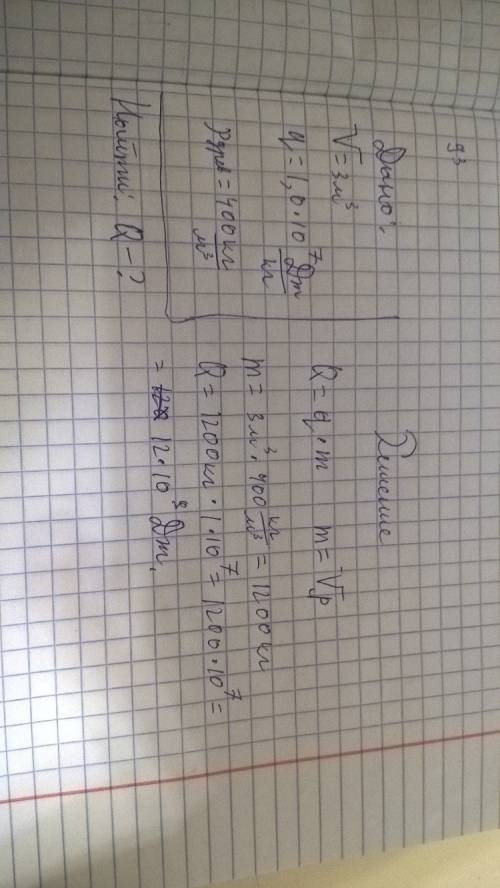 93
Дано:
V = 3 м³
q = 1,0·10⁷ Дж/кг
ρдров = 400 кг/м³
Найти: Q - ?
Решение
Q = q·m m = Vρ
m = 3 м³·400 кг/м³ = 1200 кг
Q = 1200 кг·1·10⁷ = 1200·10⁷ =
= 12·10⁸ Дж.